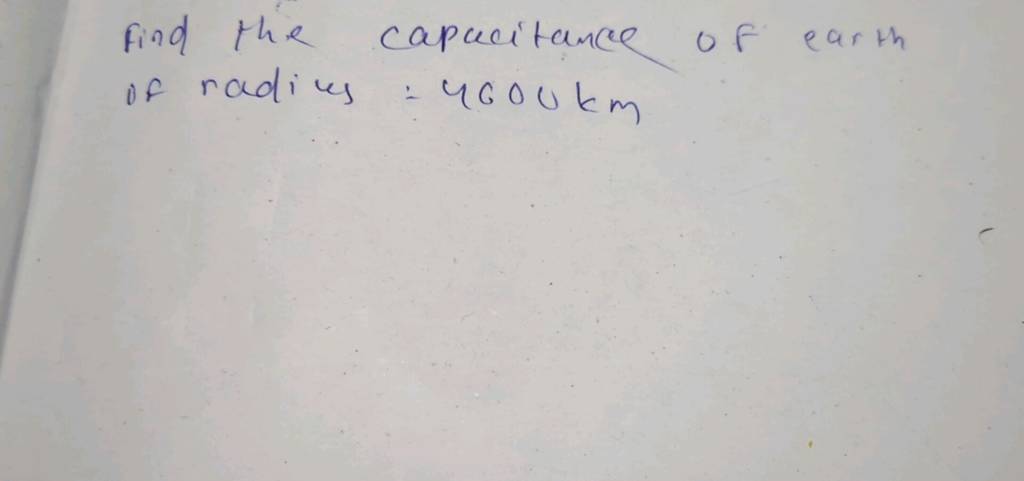 Find the capacitance of earth
of radius = 4600 km